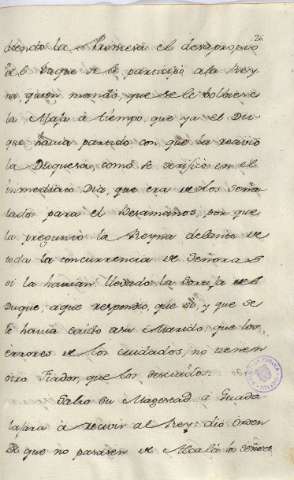 diendo la Primera el desapropio
de el Duque se lo participò a la Rey
na quien mandò, que se le volviese
la Alaja à tiempo, que ya el Du
que havia partido con que la recivio
la Duquesa, como se verificò en el
inmediato Dia, que era de los Seña
lados para el Besamanos, por que
la preguntò la Reyna delante de
toda la concurrencia de Señoras
si la havian llevado la Joya de el
Duque, a que respondio, que sì, y que se
le havia caido a su Marido, que los
errores de los cuidados, no tienen
otro Fiador, que los descuidos.
Salio Su Magestad à Guada
laxara à recivir al Rey: dio Orden
de que no pasasen de Alcalà las Señoras